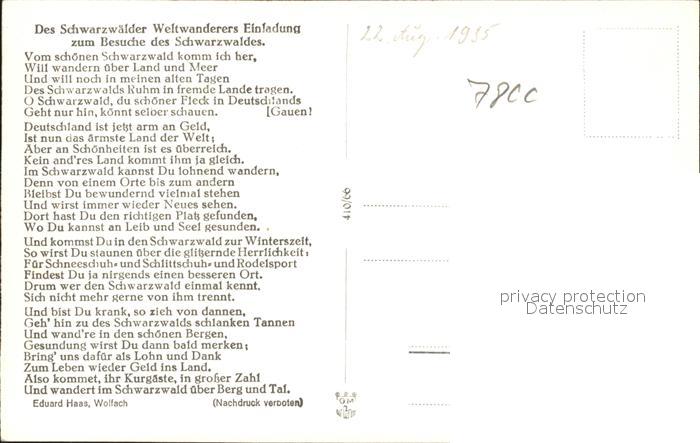 Des Schwarzwälder Weltwanderers Einladung
zum Besuche des Schwarzwaldes.
Vom schönen Schwarzwald komm ich her,
Will wandern über Land und Meer
Und will noch in meinen alten Tagen
Des Schwarzwalds Ruhm in fremde Lande tragen.
O Schwarzwald, du schöner Fleck in Deutschlands
Geht nur hin, könnt selber schauen. [Gauen!
Deutschland ist jetzt arm an Geld,
Ist nun das ärmste Land der Welt;
Aber an Schönheiten ist es überreich.
Kein and'res Land kommt ihm ja gleich.
Im Schwarzwald kannst Du lohnend wandern,
Denn von einem Orte bis zum andern
Bleibst Du bewundernd vielmal stehen
Und wirst immer wieder Neues sehen.
Dort hast Du den richtigen Platz gefunden,
Wo Du kannst an Leib und Seel gesunden.
Und kommst Du in den Schwarzwald zur Winterszeit,
So wirst Du staunen über die glitzernde Herrlichkeit;
Für Schneeschuh- und Schlittschuh- und Rodelsport
Findest Du ja nirgends einen besseren Ort.
Drum wer den Schwarzwald einmal kennt,
Sich nicht mehr gerne von ihm trennt.
Und bist Du krank, so zieh von dannen,
Geh' hin zu des Schwarzwalds schlanken Tannen
Und wand're in den schönen Bergen,
Gesundung wirst Du dann bald merken;
Bring' uns dafür als Lohn und Dank
Zum Leben wieder Geld ins Land.
Also kommet, ihr Kurgäste, in großer Zahl
Und wandert im Schwarzwald über Berg und Tal.
Eduard Haas, Wolfach (Nachdruck verboten)
410/66
22 Aug. 1935
78cc
privacy protection
Datenschutz